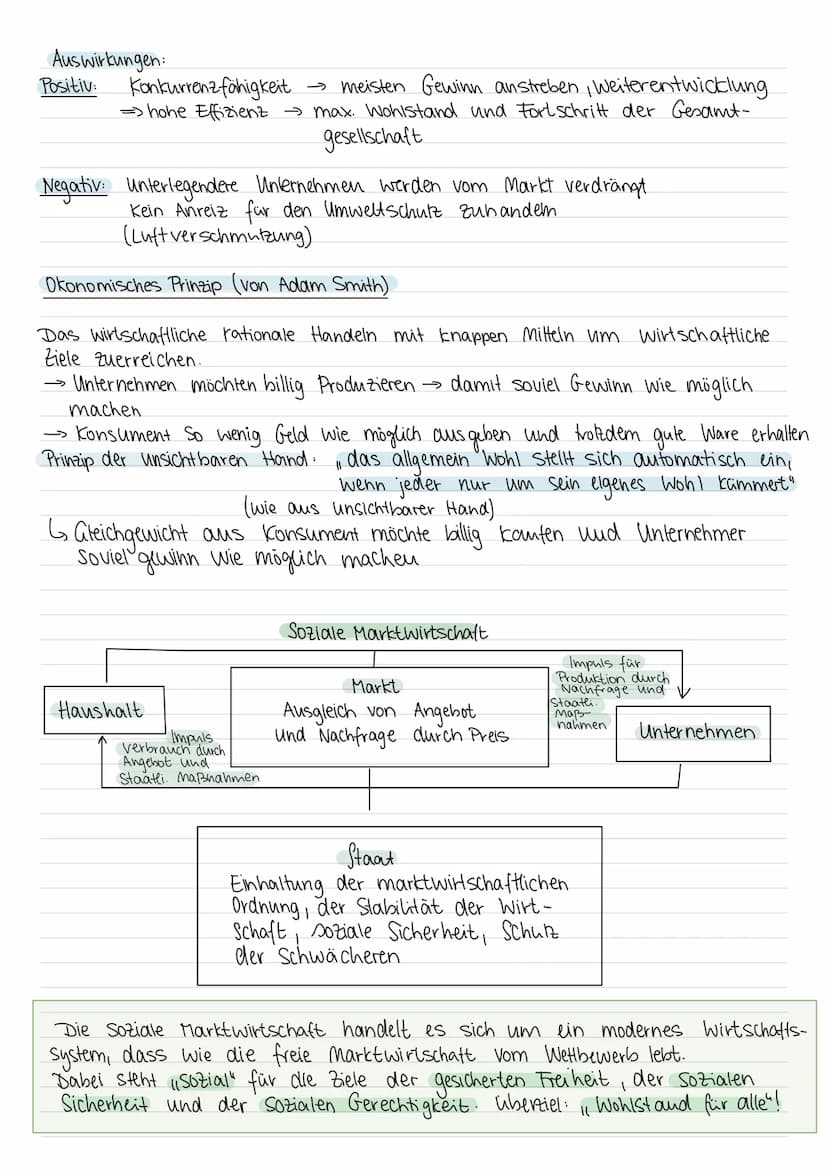 Auswirkungen:
Positiv: Konkurrenzfähigkeit → meisten Gewinn anstreben, Weiterentwicklung
⇒ hohe Effizienz → max. Wohlstand und Fortschritt der Gesamt-
gesellschaft
Negativ: Unterlegendere Unternehmen werden vom Markt verdrängt
Kein Anreiz für den Umweltschutz zuhandeln
(Luftverschmutzung)
Ökonomisches Prinzip (von Adam Smith)
Das wirtschaftliche rationale Handeln mit knappen Mitteln um wirtschaftliche
Ziele zuerreichen.
→ Unternehmen möchten billig Produzieren → damit soviel Gewinn wie möglich
machen
→ Konsument so wenig Geld wie möglich ausgeben und trotzdem gute Ware erhalten
Prinzip der unsichtbaren Hand: „das allgemein Wohl stellt sich automatisch ein,
wenn jeder nur um sein eigenes Wohl kümmert“
(wie aus unsichtbarer Hand)
↳ Gleichgewicht aus Konsument möchte billig kaufen und Unternehmer
soviel gewinn wie möglich machen
Soziale Marktwirtschaft
Haushalt
Impuls
Verbrauch durch
Angebot und
Staatli. Maßnahmen
Markt
Ausgleich von Angebot
und Nachfrage durch Preis
Impuls für
Produktion durch
Nachfrage und
Staatli.
Maß-
nahmen
Unternehmen
Staat
Einhaltung der marktwirtschaftlichen
Ordnung, der Stabilität der Wirt-
schaft, soziale Sicherheit, Schutz
der Schwächeren
Die Soziale Marktwirtschaft handelt es sich um ein modernes Wirtschafts-
system, dass wie die freie Marktwirtschaft vom Wettbewerb lebt.
Dabei steht „sozial“ für die Ziele der gesicherten Freiheit, der sozialen
Sicherheit und der sozialen Gerechtigkeit. Überziel: „Wohlstand für alle“!